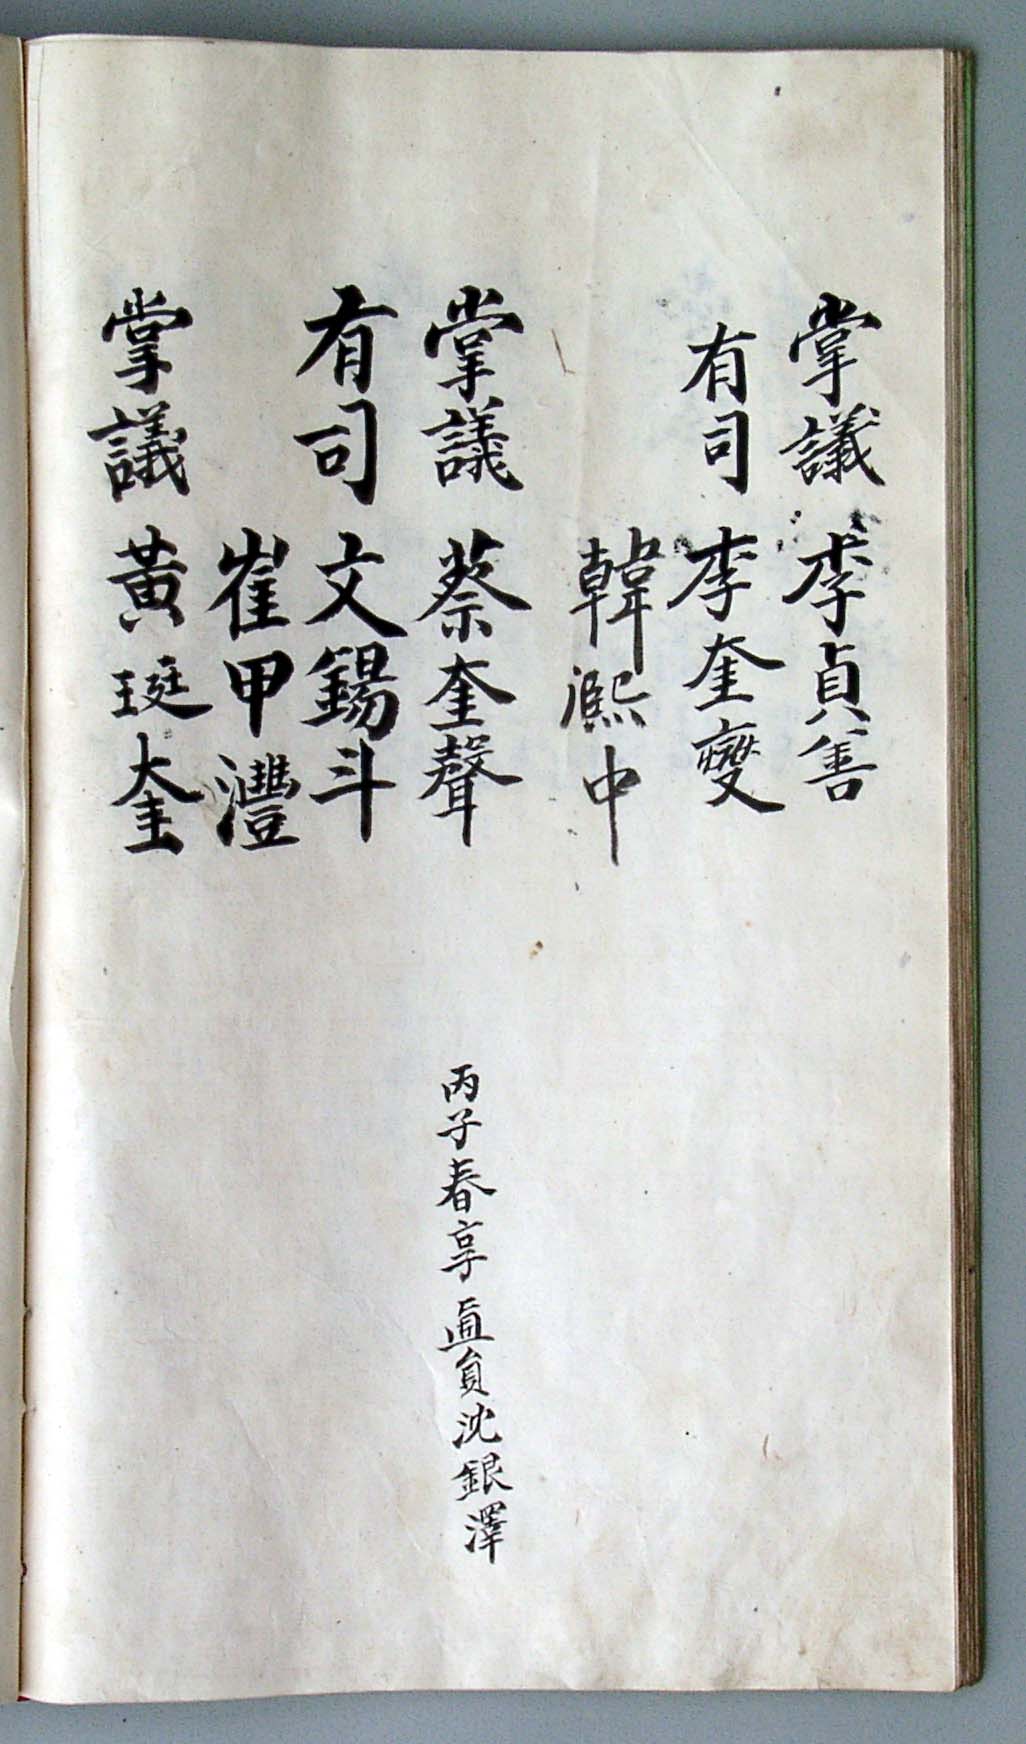 掌議 李貞善
有司 李奎變
韓凞中
掌議 蔡奎聲
丙子春享直員沈銀澤
有司 文錫斗
崔甲灃
掌議 黃珽奎